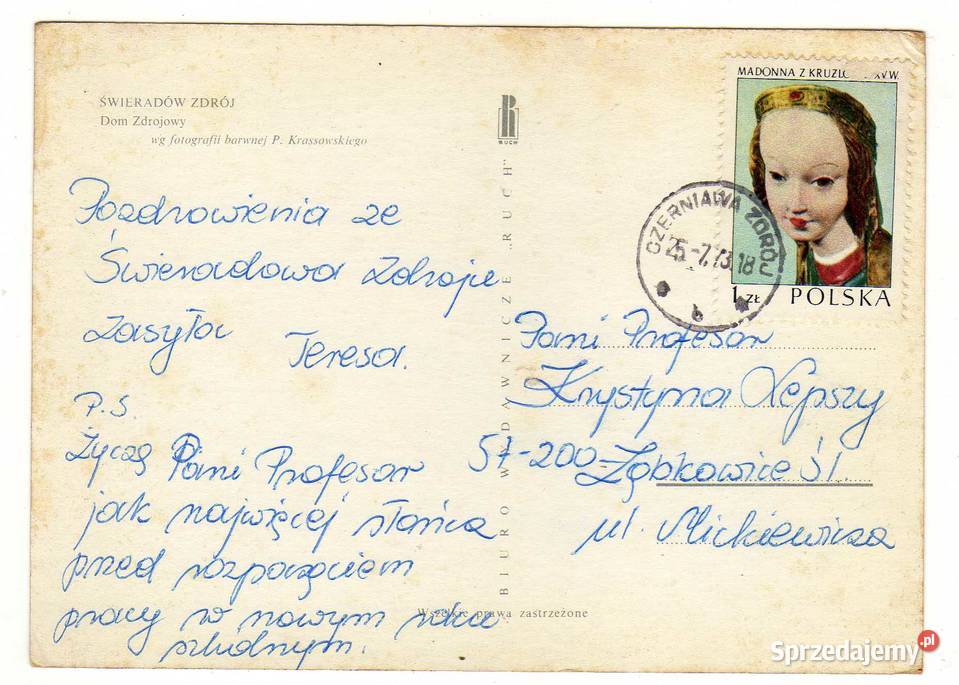 ŚWIERADÓW ZDRÓJ
Dom Zdrojowy
wg fotografii barwnej P. Krassowskiego
RUCH
BIURO WYDAWNICZE „RUCH"
MADONNA Z KRUŻLO XV W.
1 ZŁ POLSKA
CZERNIAWA ZDRÓJ
25-7.73.18
b
Pozdrowienia ze
Świeradowa Zdroju
zasyła
Teresa.
P.S.
Życzę Pani Profesor
jak najwięcej słońca
przed rozpoczęciem
pracy w nowym roku
szkolnym.
Pani Profesor
Krystyna Lepszy
57-200 Ząbkowice Śl.
ul. Mickiewicza
Wszelkie prawa zastrzeżone
Sprzedajemy.pl